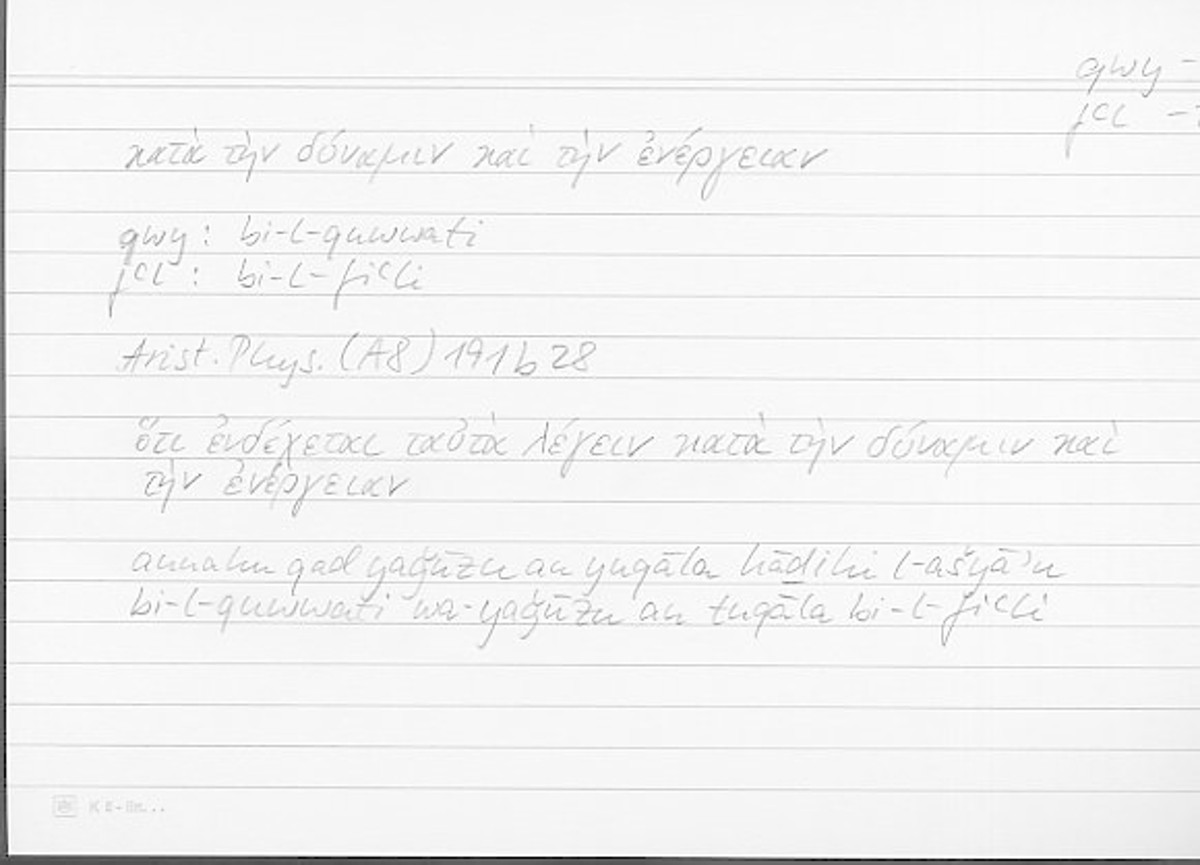 qwy -
fʿl -
κατὰ τὴν δύναμιν καὶ τὴν ἐνέργειαν
qwy : bi-l-quwwati
fʿl : bi-l-fiʿli
Arist. Phys. (A8) 191 b 28
ὅτι ἐνδέχεται ταὐτὰ λέγειν κατὰ τὴν δύναμιν καὶ
τὴν ἐνέργειαν
annahu qad yaǧūzu an yuqāla hāḏihi l-ašyāʾu
bi-l-quwwati wa-yaǧūzu an tuqāla bi-l-fiʿli